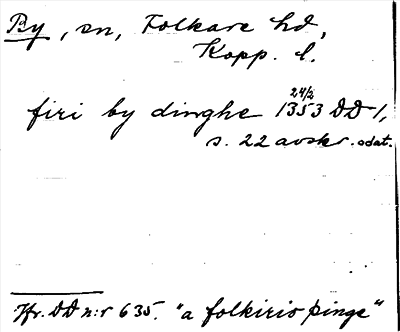 By, sn, Folkare hd,
Kopp. l.
firi by dinghe 24/2 1353 DD 1,
s. 22 avskr. odat.
Jfr. DD n:r 635. "a folkiris þings"